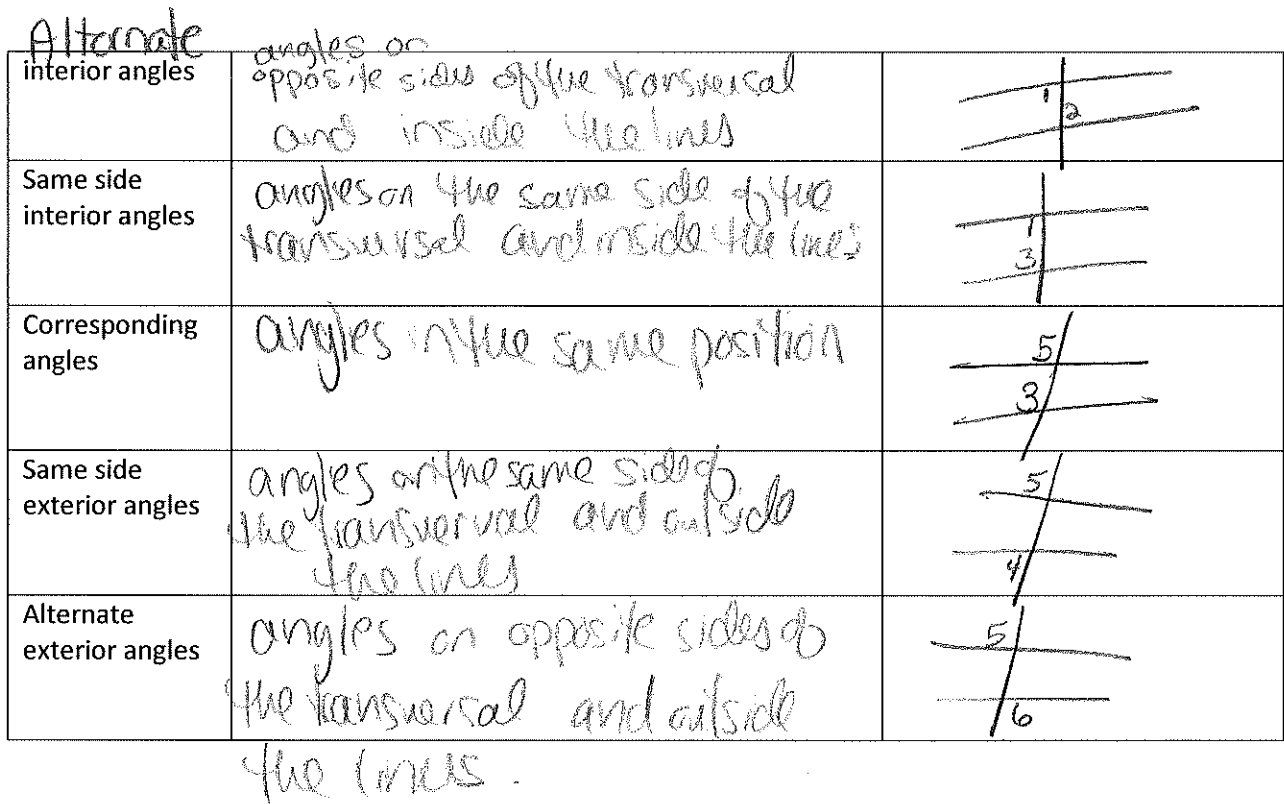 Alternate
interior angles
angles on
opposite sides of the transversal
and inside the lines
1
2
Same side
interior angles
angles on the same side of the
transversal and inside the lines
1
3
Corresponding
angles
angles in the same position
5
3
Same side
exterior angles
angles on the same side of
the tranverval and outside
the lines
5
4
Alternate
exterior angles
angles on opposite sides of
the transversal and outside
the lines.
5
6